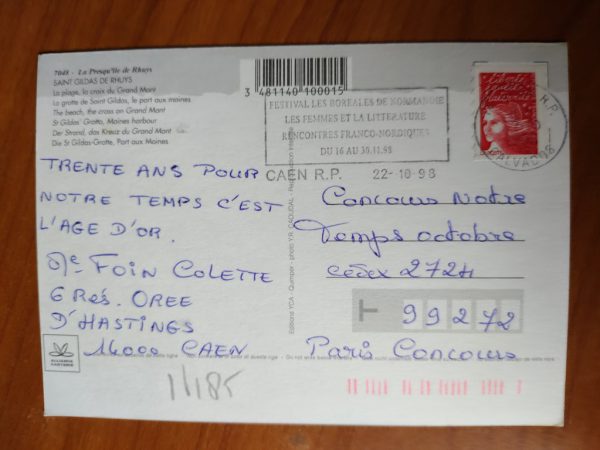 7048 - La Presqu'île de Rhuys
SAINT GILDAS DE RHUYS
La plage, la croix du Grand Mont
La grotte de Saint Gildas, le port aux moines
The beach, the cross on Grand Mont
St Gildas' Grotto, Moines harbour
Der Strand, das Kreuz du Grand Mont
Die St Gildas-Grotte, Port aux Moines
3 481140 100015
FESTIVAL LES BOREALES DE NORMANDIE
LES FEMMES ET LA LITTERATURE
RENCONTRES FRANCO-NORDIQUES
DU 16 AU 30.11.98
CAEN R.P. 22-10-98
Liberté
égalité
fraternité
R.P.
CALVADOS
TRENTE ANS POUR
NOTRE TEMPS C'EST
L'AGE D'OR.
Me FOIN COLETTE
6 Rés. OREE
D'HASTINGS
14000 CAEN
1/185
Editions YCA - Quimper - photo YR. CAOUDAL - Reproduction interdite
Concours Notre
Temps octobre
cédex 2724
99272
Paris Concours